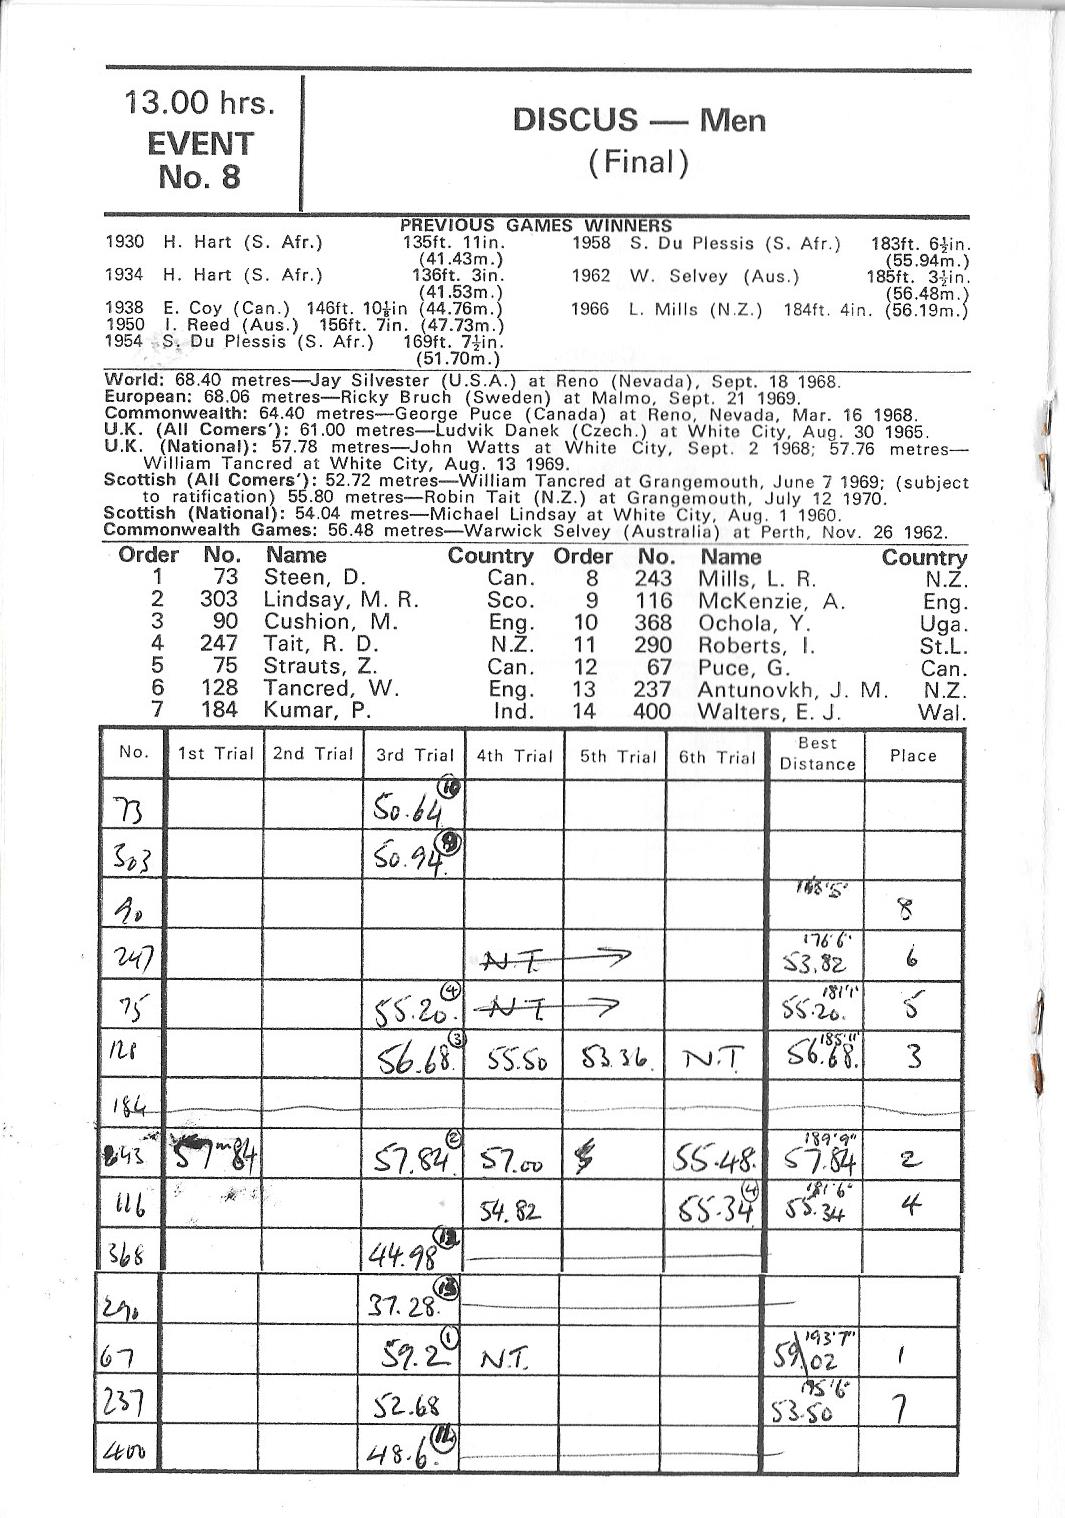 13.00 hrs.
EVENT
No. 8
DISCUS — Men
(Final)
PREVIOUS GAMES WINNERS
1930 H. Hart (S. Afr.) 135ft. 11in.
(41.43m.)
1934 H. Hart (S. Afr.) 136ft. 3in.
(41.53m.)
1938 E. Coy (Can.) 146ft. 10½in (44.76m.)
1950 I. Reed (Aus.) 156ft. 7in. (47.73m.)
1954 S. Du Plessis (S. Afr.) 169ft. 7½in.
(51.70m.)
1958 S. Du Plessis (S. Afr.) 183ft. 6½in.
(55.94m.)
1962 W. Selvey (Aus.) 185ft. 3½in.
(56.48m.)
1966 L. Mills (N.Z.) 184ft. 4in. (56.19m.)
World: 68.40 metres—Jay Silvester (U.S.A.) at Reno (Nevada), Sept. 18 1968.
European: 68.06 metres—Ricky Bruch (Sweden) at Malmo, Sept. 21 1969.
Commonwealth: 64.40 metres—George Puce (Canada) at Reno, Nevada, Mar. 16 1968.
U.K. (All Comers'): 61.00 metres—Ludvik Danek (Czech.) at White City, Aug. 30 1965.
U.K. (National): 57.78 metres—John Watts at White City, Sept. 2 1968; 57.76 metres—
William Tancred at White City, Aug. 13 1969.
Scottish (All Comers'): 52.72 metres—William Tancred at Grangemouth, June 7 1969; (subject
to ratification) 55.80 metres—Robin Tait (N.Z.) at Grangemouth, July 12 1970.
Scottish (National): 54.04 metres—Michael Lindsay at White City, Aug. 1 1960.
Commonwealth Games: 56.48 metres—Warwick Selvey (Australia) at Perth, Nov. 26 1962.
Order No. Name Country Order No. Name Country
1 73 Steen, D. Can. 8 243 Mills, L. R. N.Z.
2 303 Lindsay, M. R. Sco. 9 116 McKenzie, A. Eng.
3 90 Cushion, M. Eng. 10 368 Ochola, Y. Uga.
4 247 Tait, R. D. N.Z. 11 290 Roberts, I. St.L.
5 75 Strauts, Z. Can. 12 67 Puce, G. Can.
6 128 Tancred, W. Eng. 13 237 Antunovkh, J. M. N.Z.
7 184 Kumar, P. Ind. 14 400 Walters, E. J. Wal.
No. 1st Trial 2nd Trial 3rd Trial 4th Trial 5th Trial 6th Trial Best Distance Place
73 50.64 10
303 50.94 9
90 8
247 N.T. 176'6" 53.82 6
75 55.20. 4 N T 181'1" 55.20. 5
128 56.68 3 55.50 53.36. N.T. 185'11" 56.68. 3
184
243 57m84 57.84 2 57.00 55.48. 189'9" 57.84 2
116 54.82 55.34 4 181'6" 55.34 4
368 44.98 12
290 37.28. 13
67 59.2 1 N.T. 193'7" 59.02 1
237 52.68 175'6" 53.50 7
400 48.6. 11